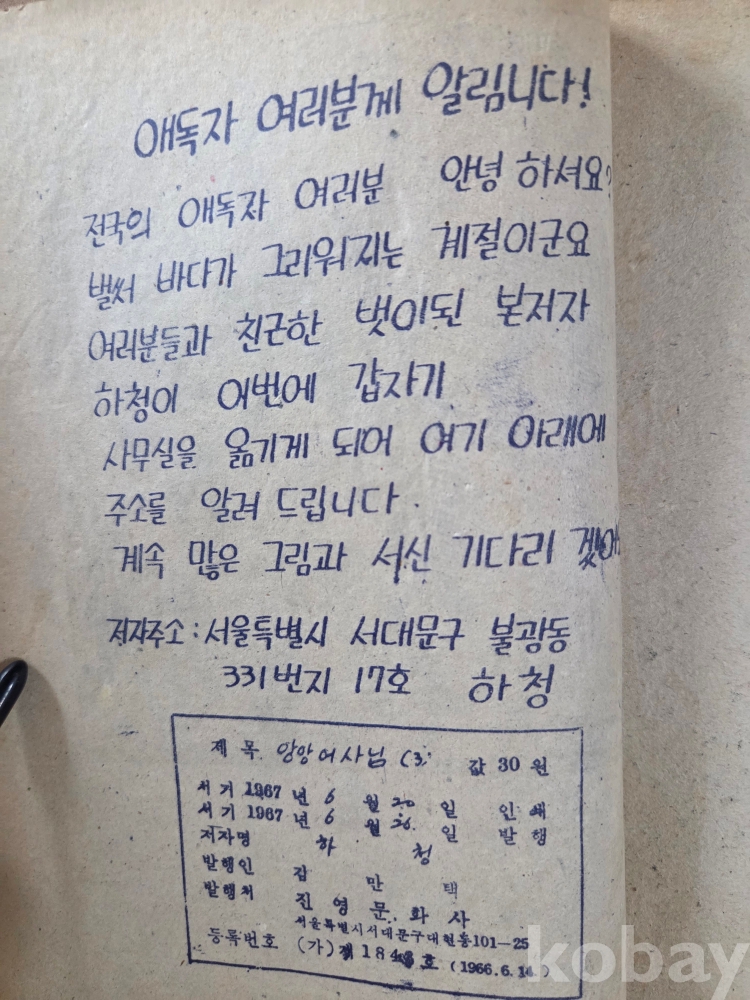 애독자 여러분게 알림니다!
전국의 애독자 여러분 안녕 하셔요?
벌써 바다가 그리워지는 계절이군요
여러분들과 친근한 벗이된 본저자
하청이 이번에 갑자기
사무실을 옮기게 되어 여기 아래에
주소를 알려 드립니다.
계속 많은 그림과 서신 기다리
저자주소:서울특별시 서대문구 불광동
331번지 17호 하청
제 목 앙앙어사님 (3) 값 30 원
서기 1967 년 6 월 20 일 인 쇄
서기 1967 년 6 월 26 일 발 행
저자명 하 청
발행인 김 만 택
발행처 진 영 문 화 사
서울특별시서대문구대현동101—25
등록번호 (가) 제 184 호 (1966.6.14.)
kobay